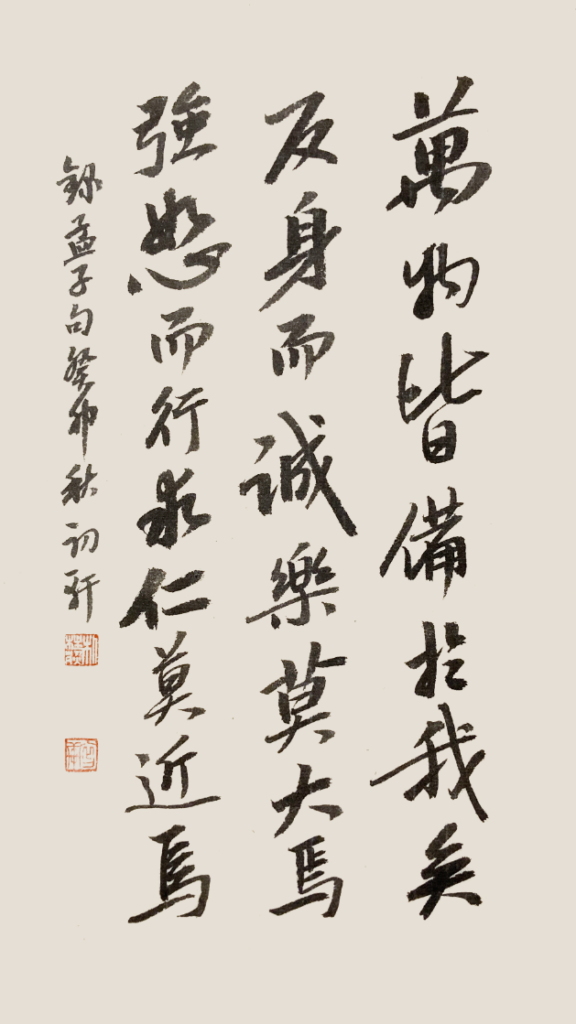 萬物皆備於我矣
反身而誠樂莫大焉
強恕而行求仁莫近焉
錄孟子句癸卯秋初軒